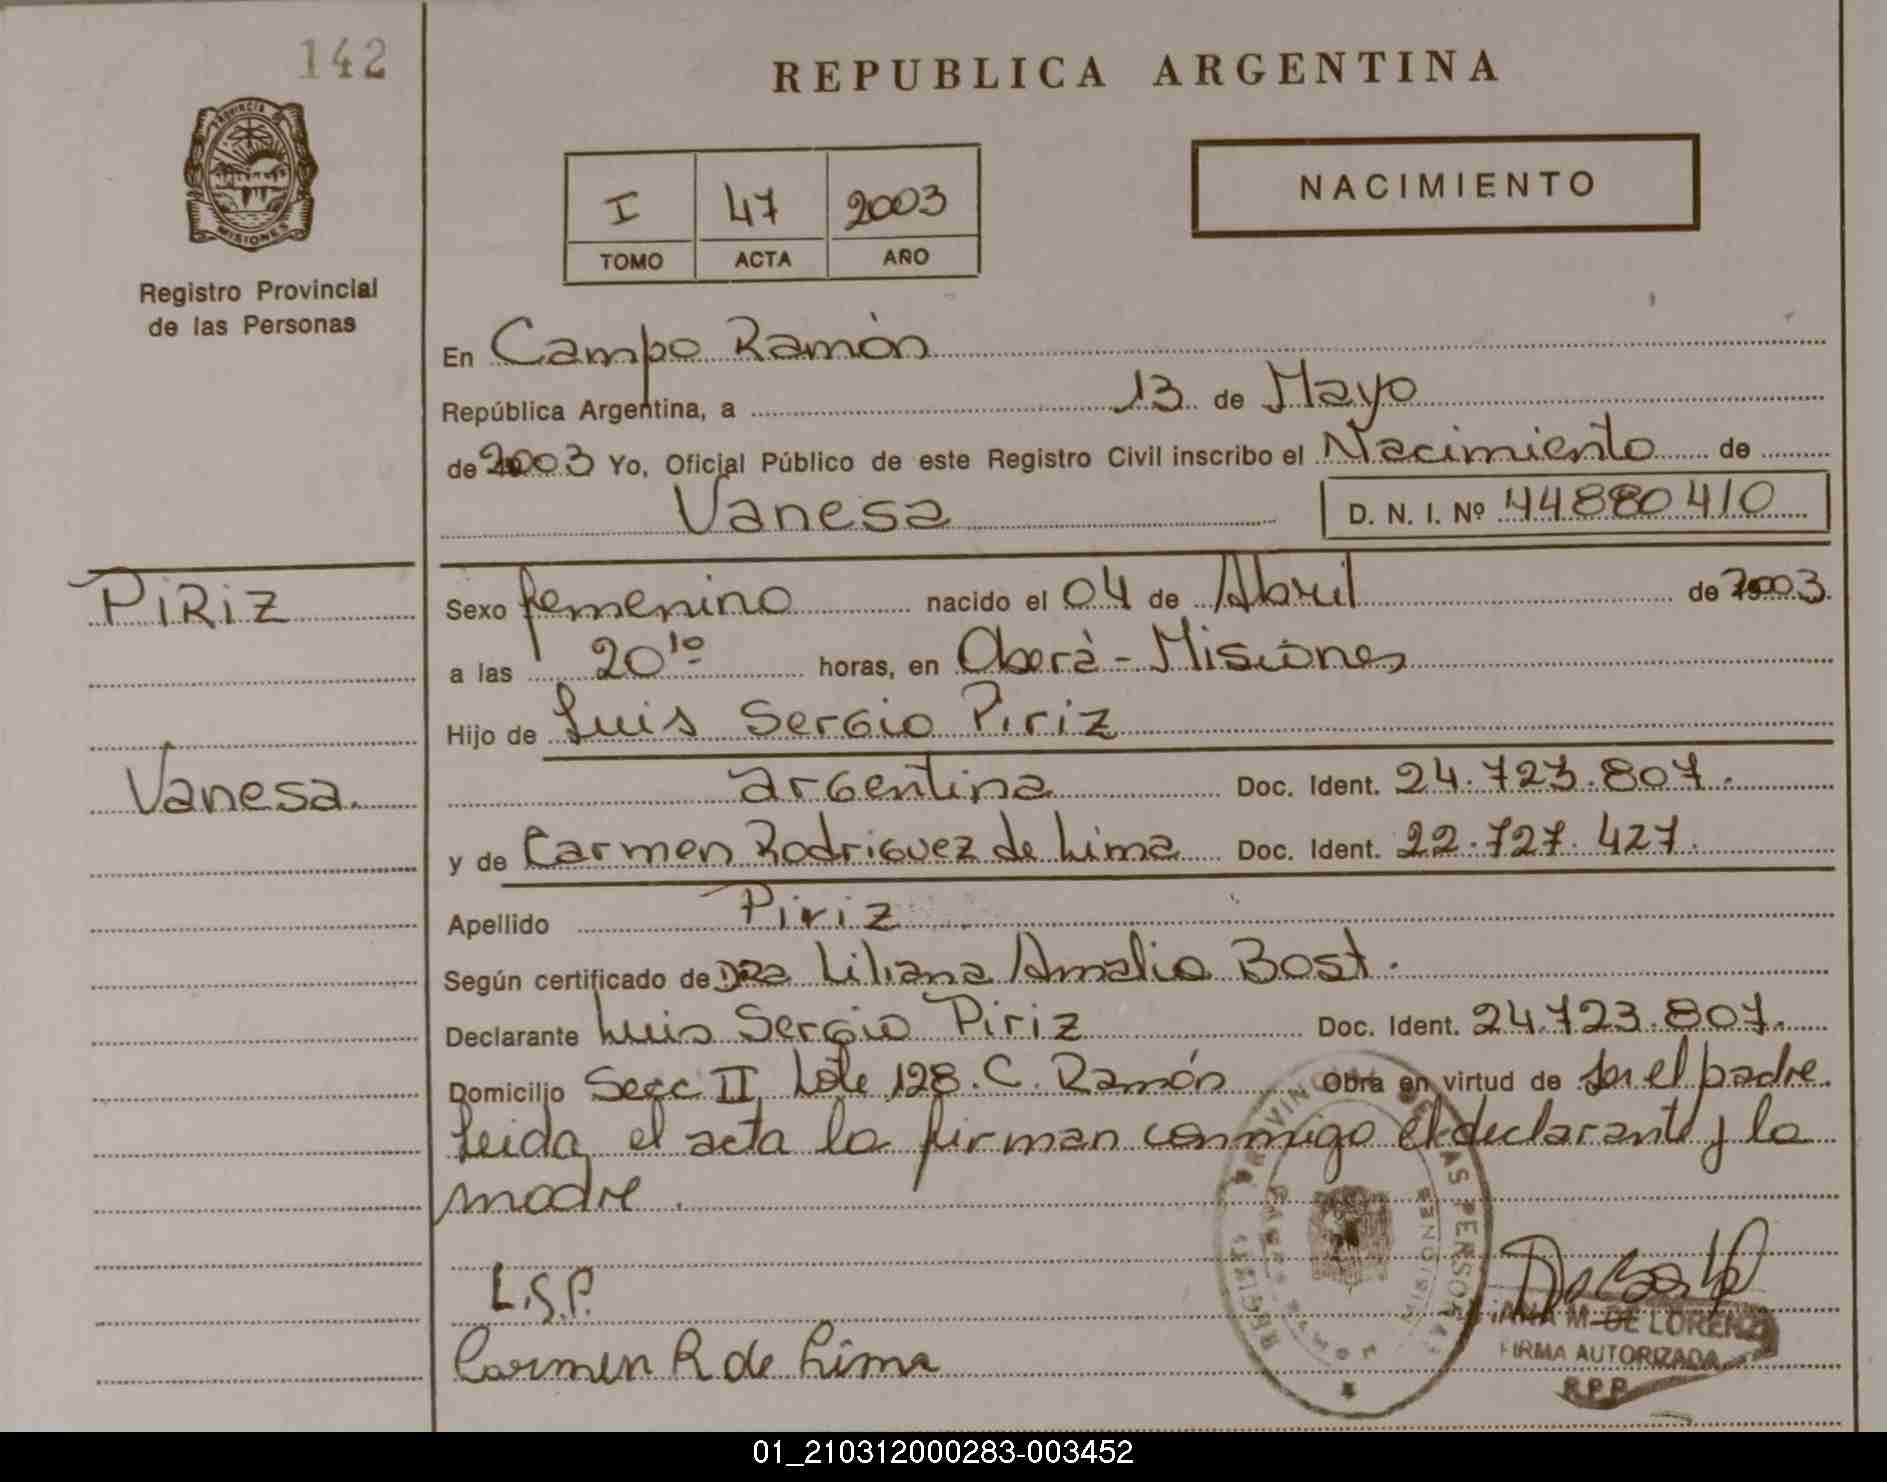 142
REPUBLICA ARGENTINA
PROVINCIA DE
MISIONES
Registro Provincial
de las Personas
I 47 2003
TOMO ACTA AÑO
NACIMIENTO
En Campo Ramón
República Argentina, a 13 de Mayo
de 2003 Yo, Oficial Público de este Registro Civil inscribo el Nacimiento de
Vanesa D. N. I. Nº 44880410
PIRIZ
Sexo femenino nacido el 04 de Abril de 2003
a las 20 10 horas, en Oberá - Misiones
Hijo de Luis Sergio Piriz
Vanesa.
argentina Doc. Ident. 24.723.807.
y de Carmen Rodriguez de Lima Doc. Ident. 22.727.427.
Apellido Piriz
Según certificado de Dra Liliana Amalia Bost.
Declarante Luis Sergio Piriz Doc. Ident. 24.723.807.
Domicilio Secc II Lote 128. C. Ramón Obra en virtud de ser el padre.
Leida el acta la firman conmigo el declarante y la
madre.
L.S.P.
Carmen R de Lima
M. DE LORENZI
FIRMA AUTORIZADA
R.P.P.
01_210312000283-003452